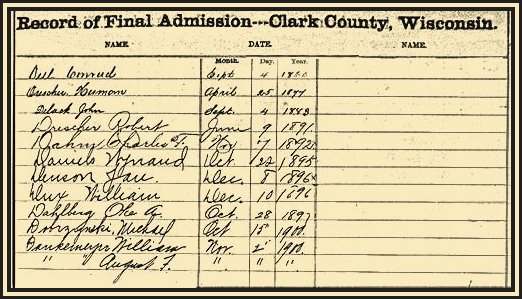 Record of Final Admission---Clark County, Wisconsin.
NAME. DATE. NAME.
Month. Day. Year.
Conrad Sept 4
Herman April 25
John Sept. 4 1883
Drescher Robert June 9 1891
Charles F. Nov 7 1892
Daniels Oct. 22 1895
Denson Dec. 8 1896
Dux William Dec. 10 1896
Dahlberg Ole A. Oct. 28 1897
Dobrzynski, Michael Oct 15 1900.
Dankemeyer William Nov. 2 1900.
" " August F. " " "